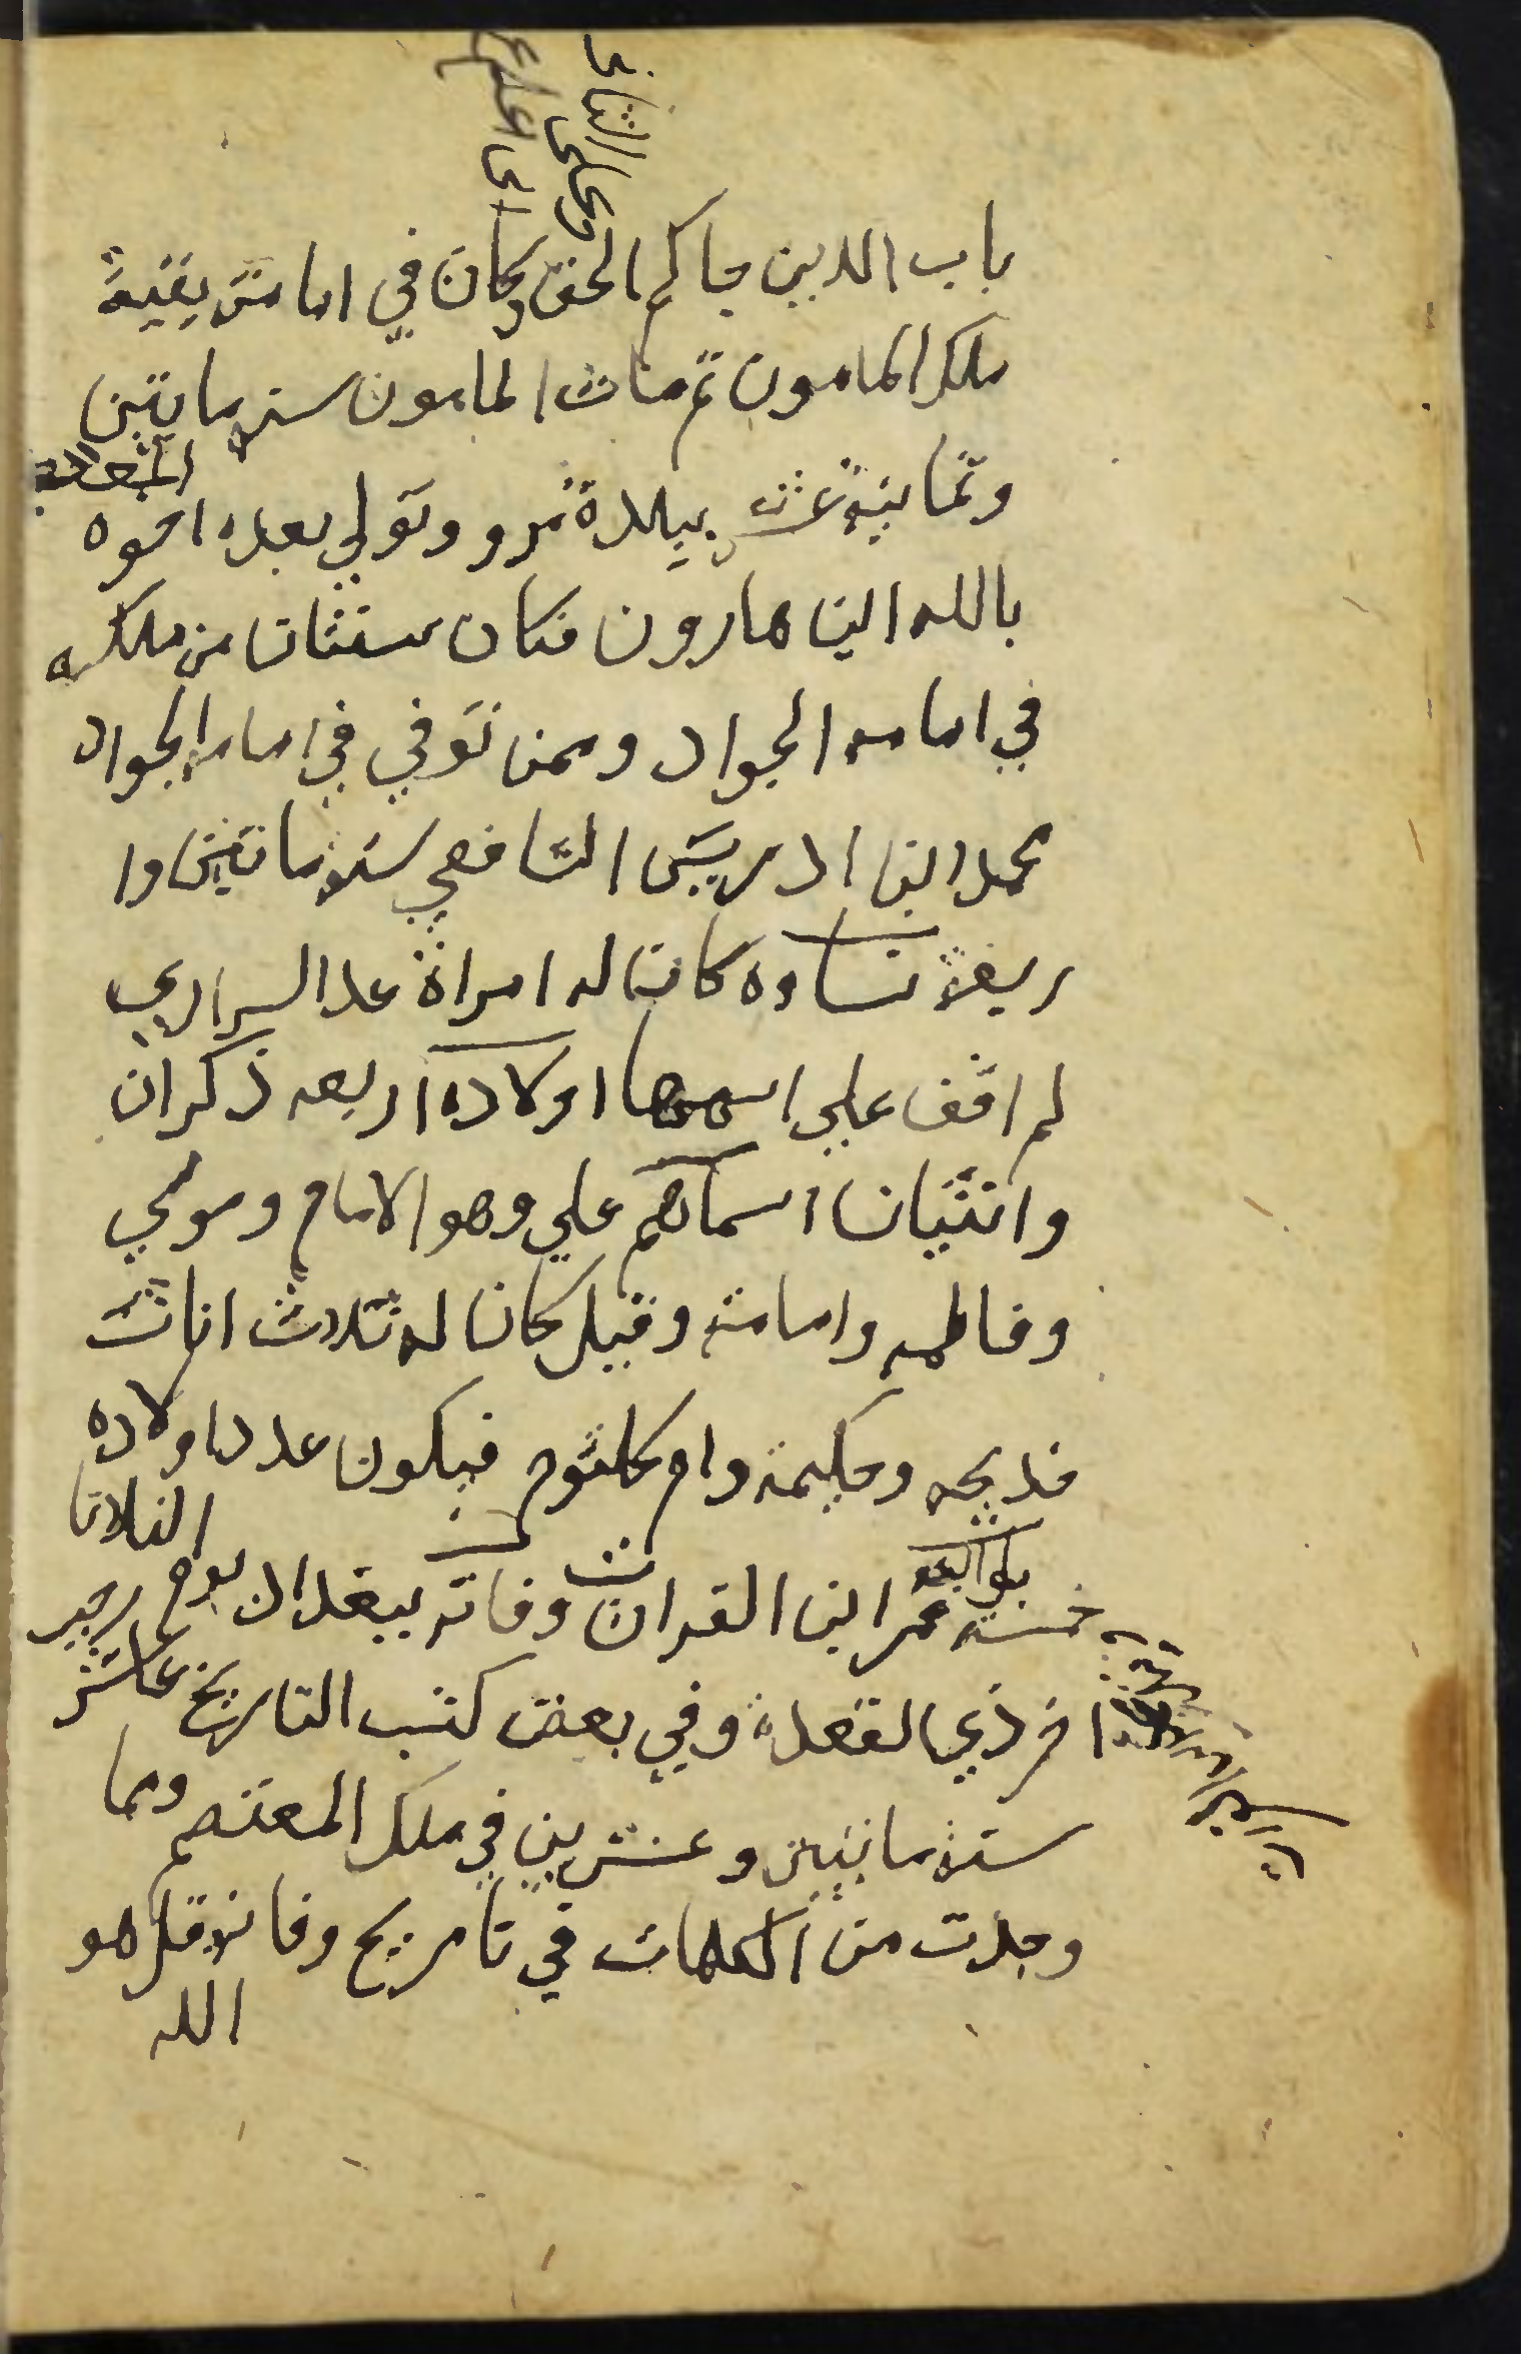 باب الدين حاكم الحق وكان في امامته بقية
ملك المامون ثم مات المامون سنة مايتين
وثمانية عشر ببلدة مرو وتولي بعده اخوه المعتصم
بالله ابن هارون فكان سنتان من ملكه
في امامه الجواد وممن توفي في امامة الجواد
محمد ابن ادريس الشافعي سنة مايتين وا
ربعة نساوه كان له امراة عدا السراري
لم اقف علي اسمها اولاده اربعه ذكران
وانثيان اسماهم علي وهو الامام وموسي
وفاطمه وامامة وقيل كان له ثلاث اناث
خديجه وحكيمة وام كلثوم فيكون عدد اولاده
خمسة بوابه عمر ابن الفرات وفاته ببغداد يوم الثلاثا
اخر ذي القعدة وفي بعض كتب التاريخ عاشر رجب
سنة مايتين وعشرين في ملك المعتصم ومما
وجدت من الكلمات في تاريخ وفاته قل هو
الله